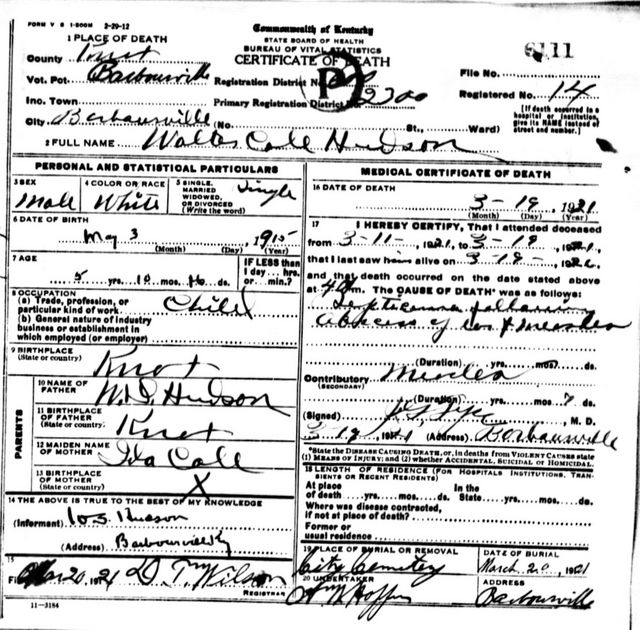 FORM V S 1-500M 2-29-12
Commonwealth of Kentucky
STATE BOARD OF HEALTH
BUREAU OF VITAL STATISTICS
CERTIFICATE OF DEATH
1 PLACE OF DEATH
County Knox
Vot. Pct Barbourville
Inc. Town
City Barbourville (No. St., Ward)
Registration District No.
Primary Registration District
File No. 6111
Registered No. 14
[If death occurred in a hospital or institution, give its NAME instead of street and number.]
2 FULL NAME Walter Cole Hudson
PERSONAL AND STATISTICAL PARTICULARS
3 SEX Male
4 COLOR OR RACE White
5 SINGLE, MARRIED WIDOWED, OR DIVORCED (Write the word) Single
6 DATE OF BIRTH
May 3 1915
(Month) (Day) (Year)
7 AGE
5 yrs. 10 mos. 16 ds.
IF LESS than 1 day... hrs. or min.?
8 OCCUPATION
(a) Trade, profession, or particular kind of work Child
(b) General nature of industry business or establishment in which employed (or employer)
9 BIRTHPLACE (State or country) Knox
PARENTS
10 NAME OF FATHER W. D. Hudson
11 BIRTHPLACE OF FATHER (State or country) Knox
12 MAIDEN NAME OF MOTHER Ida Cole
13 BIRTHPLACE OF MOTHER (State or country) X
14 THE ABOVE IS TRUE TO THE BEST OF MY KNOWLEDGE
(Informant) Hudson
(Address) Barbourville Ky
15
Mar 20, 1921 D. T. Wilson
REGISTRAR
11-3184
MEDICAL CERTIFICATE OF DEATH
16 DATE OF DEATH
3-19, 1921
(Month) (Day) (Year)
17 I HEREBY CERTIFY, That I attended deceased
from 3-11-, 1921, to 3-19, 1921,
that I last saw him alive on 3-18-, 192
and that death occurred on the date stated above
at m. The CAUSE OF DEATH* was as follows:
Septicaemia following
Abscess of & measles
(Duration) yrs. mos. ds.
Contributory Measles
(SECONDARY)
(Duration) yrs. mos. ds.
(Signed) M. D.
3-19, 1921 (Address) Barbourville
*State the DISEASE CAUSING DEATH, or, in deaths from VIOLENT CAUSES state (1) MEANS OF INJURY; and (2) whether ACCIDENTAL, SUICIDAL or HOMICIDAL.
18 LENGTH OF RESIDENCE (FOR HOSPITALS INSTITUTIONS, TRANSIENTS OR RECENT RESIDENTS)
At place of death yrs. mos. ds. In the State yrs. mos. ds.
Where was disease contracted, if not at place of death?
Former or usual residence
19 PLACE OF BURIAL OR REMOVAL City Cemetery
DATE OF BURIAL March 20 1921
20 UNDERTAKER
ADDRESS Barbourville